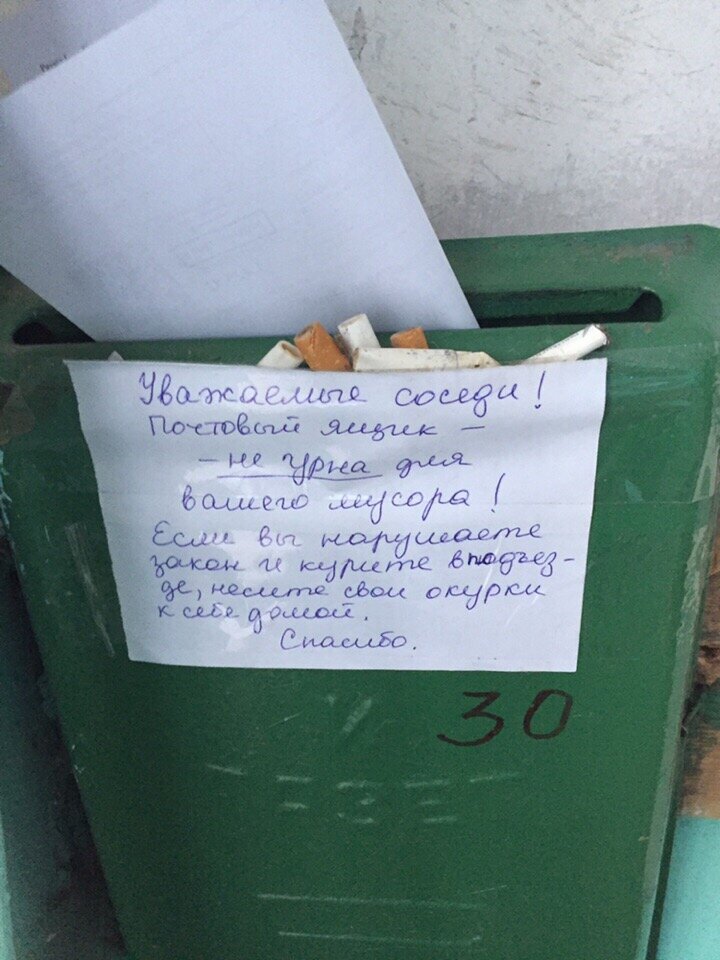 Уважаемые соседи!
Почтовый ящик –
– не урна для
вашего мусора!
Если вы нарушаете
закон и курите в подъез-
де, несите свои окурки
к себе домой.
Спасибо.
30